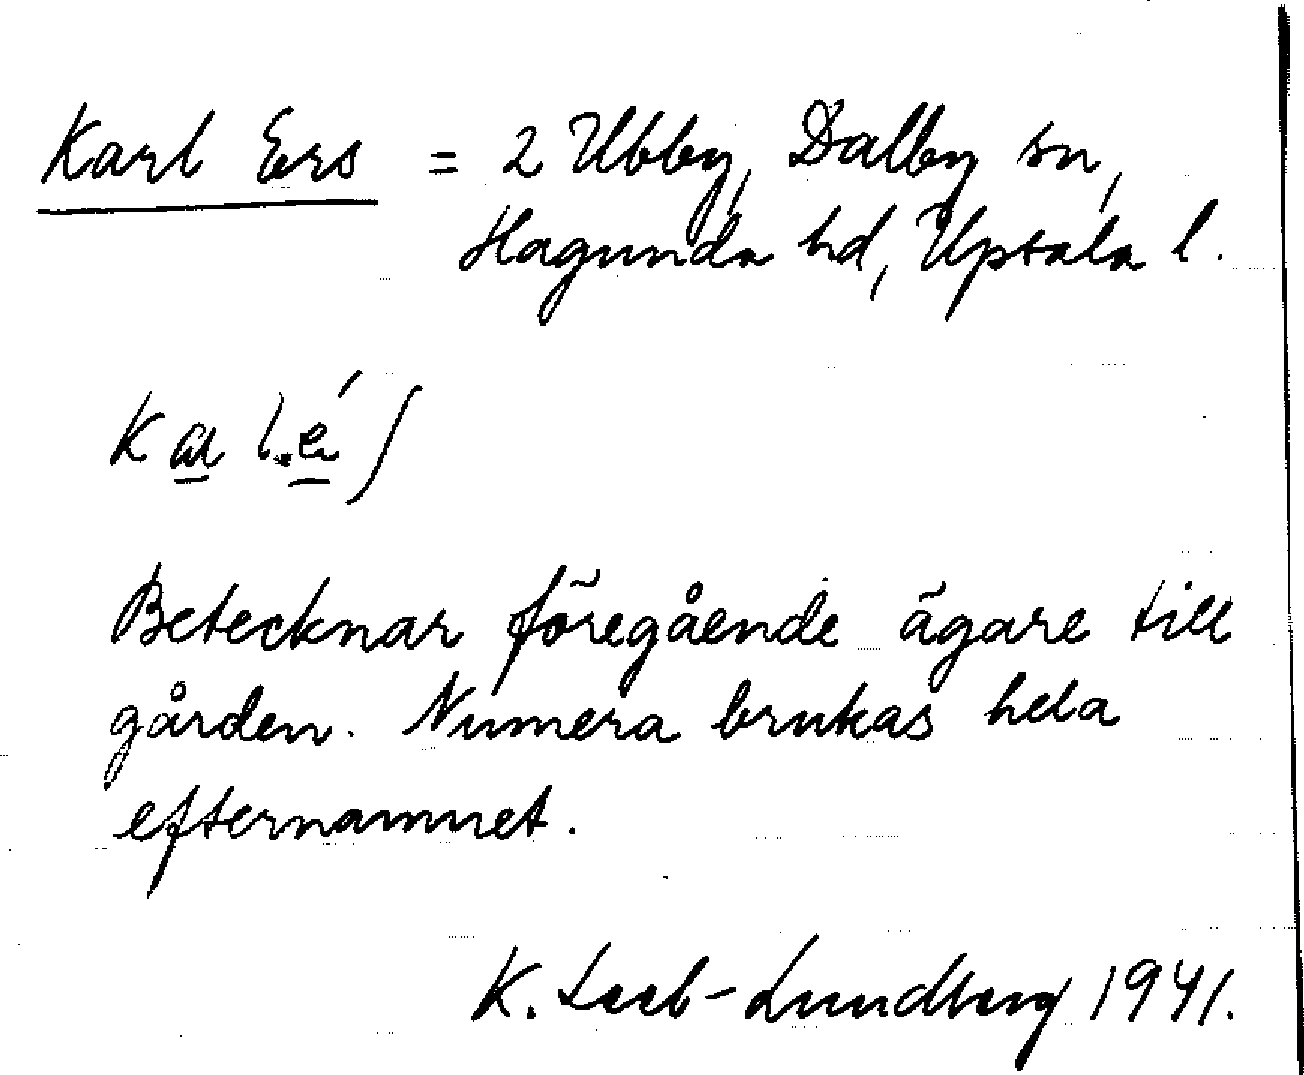 Karl Ers = 2 Ubby, Dalby sn,
Hagunda hd, Upsala l.
Kal.éʃ
Betecknar föregående ägare till
gården. Numera brukas hela
efternamnet.
K. Leeb-Lundberg 1941.